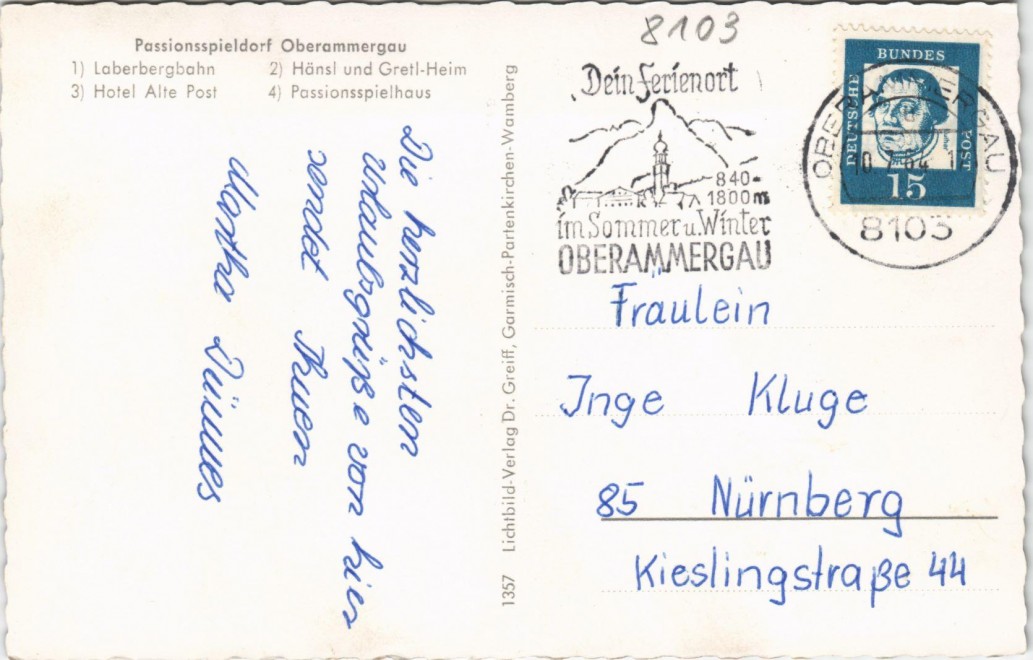 8103
Passionsspieldorf Oberammergau
1) Laberbergbahn 2) Hänsl und Gretl-Heim
3) Hotel Alte Post 4) Passionsspielhaus
Die herzlichsten
Urlaubsgrüße von hier
sendet Ihnen
Martha Dünnes
Lichtbild-Verlag Dr. Greiff, Garmisch-Partenkirchen-Wamberg
1357
Dein Ferienort
840-
1800m
im Sommer u. Winter
OBERAMMERGAU
DEUTSCHE
BUNDES
POST
15
8103
Fräulein
Inge Kluge
85 Nürnberg
Kieslingstraße 44